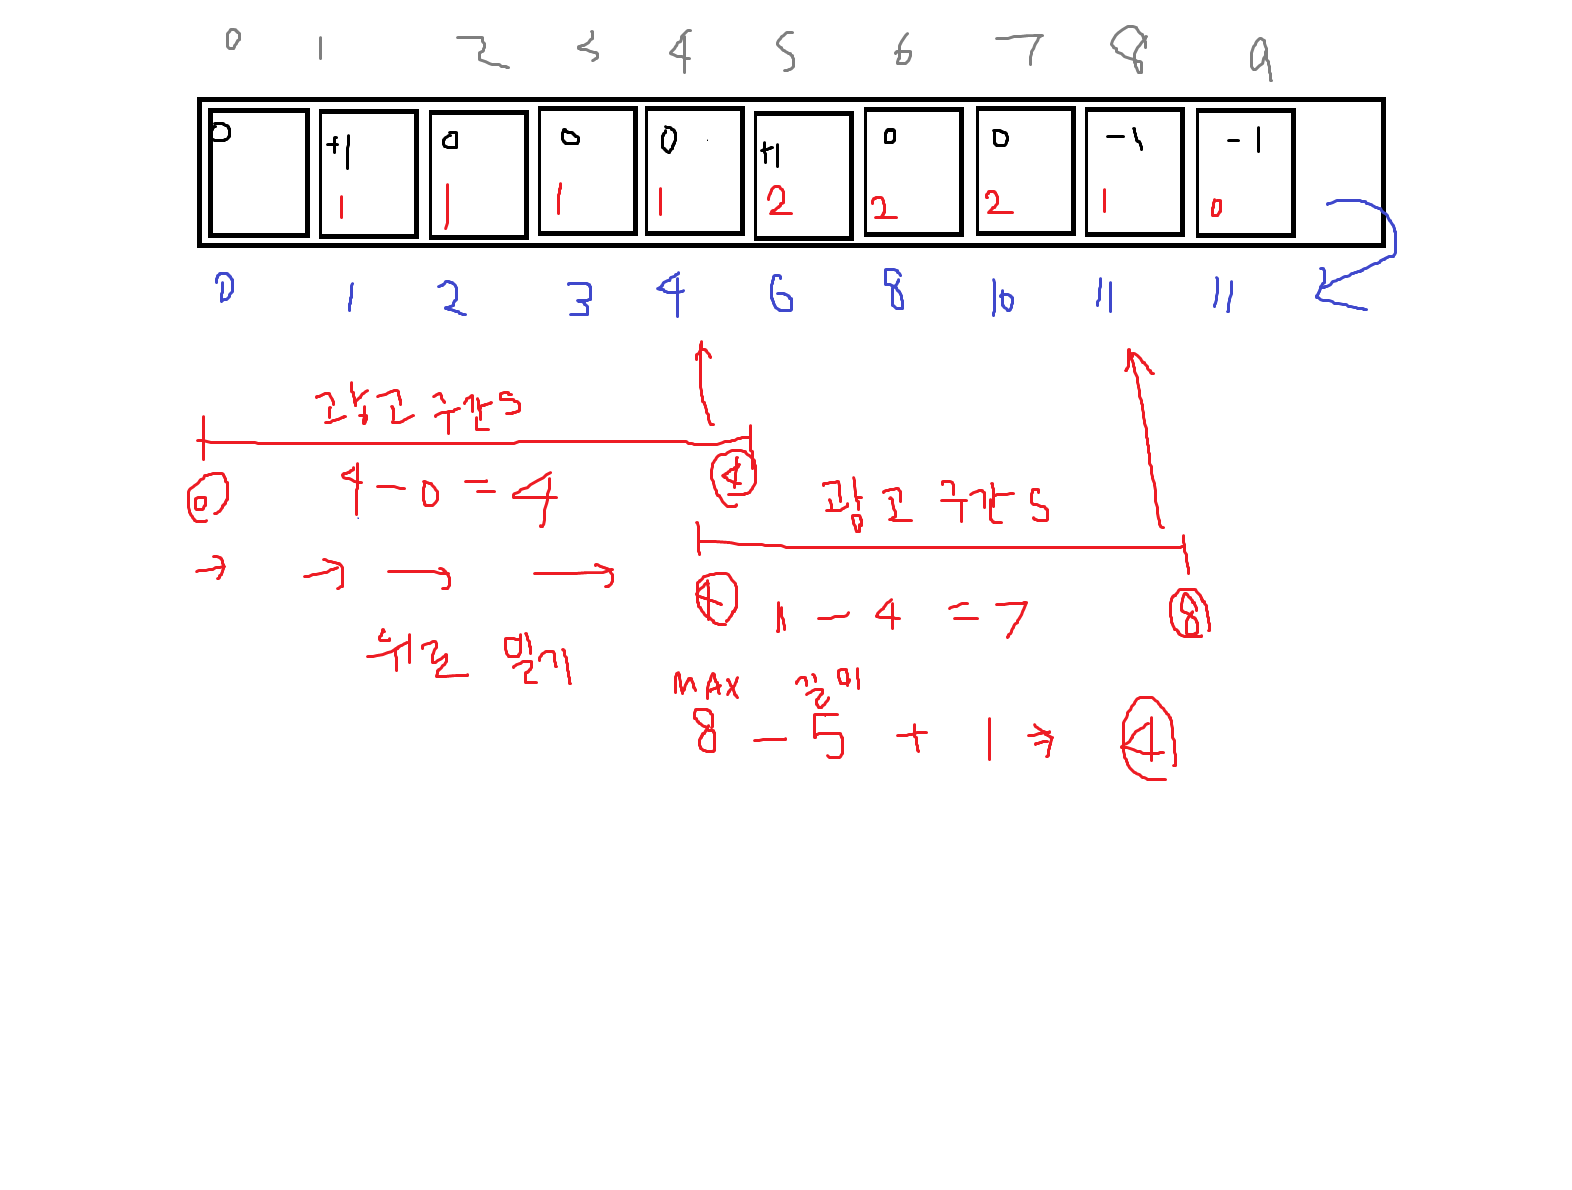 0 1 2 3 4 5 6 7 8 9
0 +1 0 0 0 +1 0 0 -1 -1
1 1 1 1 2 2 2 1 0
0 1 2 3 4 6 8 10 11 11
광고 구간 5
0 4 - 0 = 4 4
광고 구간 5
4 11 - 4 = 7 8
뒤로 밀기
MAX 길이
8 - 5 + 1 => 4